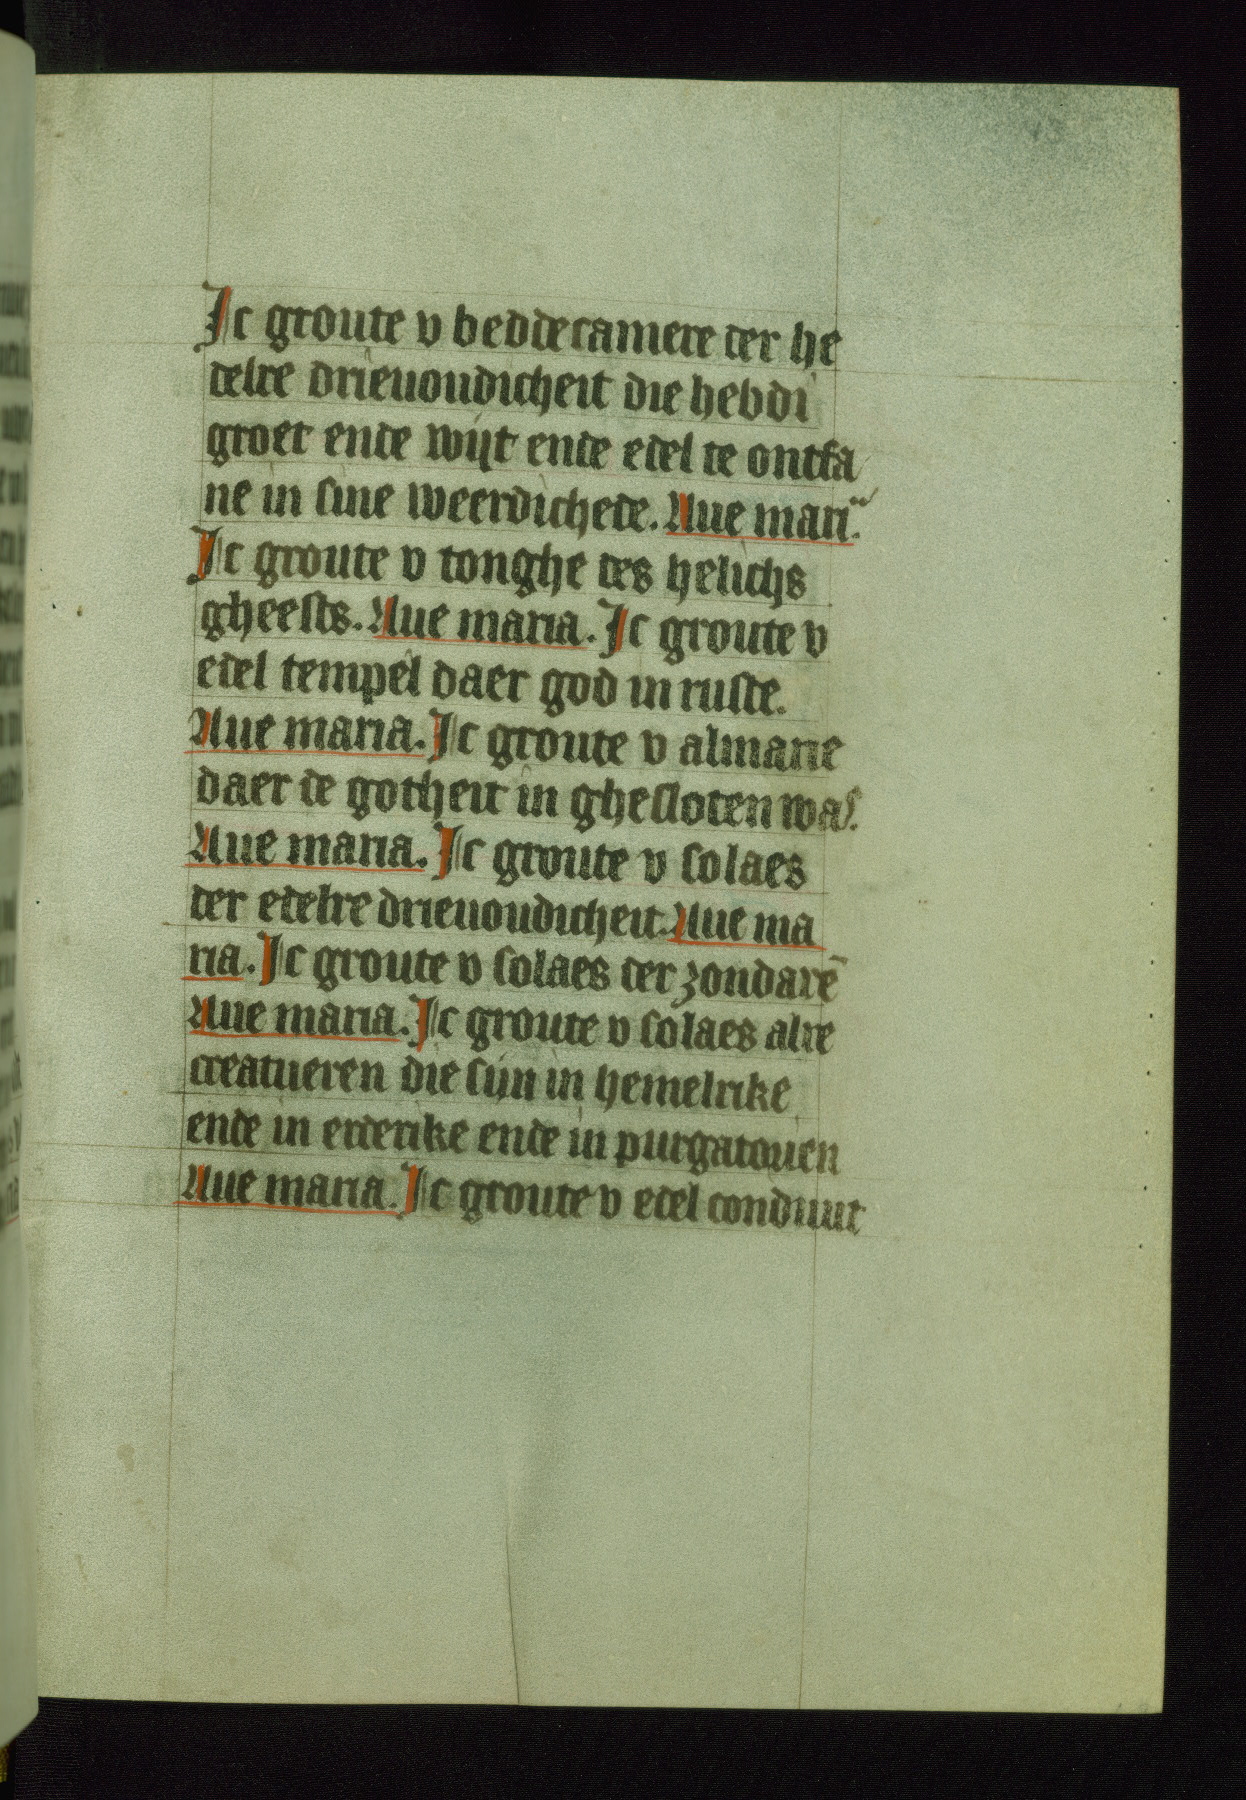 Ic groute v beddecamere der he
delre drieuoudicheit die hebdi
groet ende wijt ende edel te ontfa
ne in sine weerdichede. Aue mari
Ic groute v tonghe des helichs
gheests. Aue maria. Ic groute v
edel tempel daer god in ruste.
Aue maria. Ic groute v almarie
daer de gotheit in ghesloten was.
Aue maria. Ic groute v solaes
der edelre drieuoudicheit. Aue ma
ria. Ic groute v solaes der zondarē
Aue maria. Ic groute v solaes alre
creatueren die sijn in hemelrike
ende in erderike ende in purgatorien
Aue maria. Ic groute v edel conduut